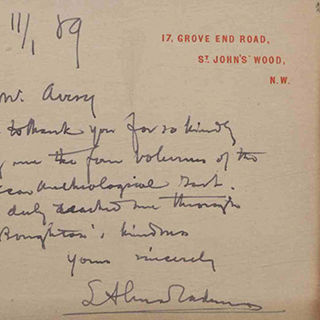 11/1 89
17, GROVE END ROAD,
ST. JOHN'S WOOD,
N.W.
Mr. Avery
to thank you for so kindly
me the four volumes of the
Archeological Inst.
duly reached me through
Boughton's kindness
yours sincerely
L Alma Tadema